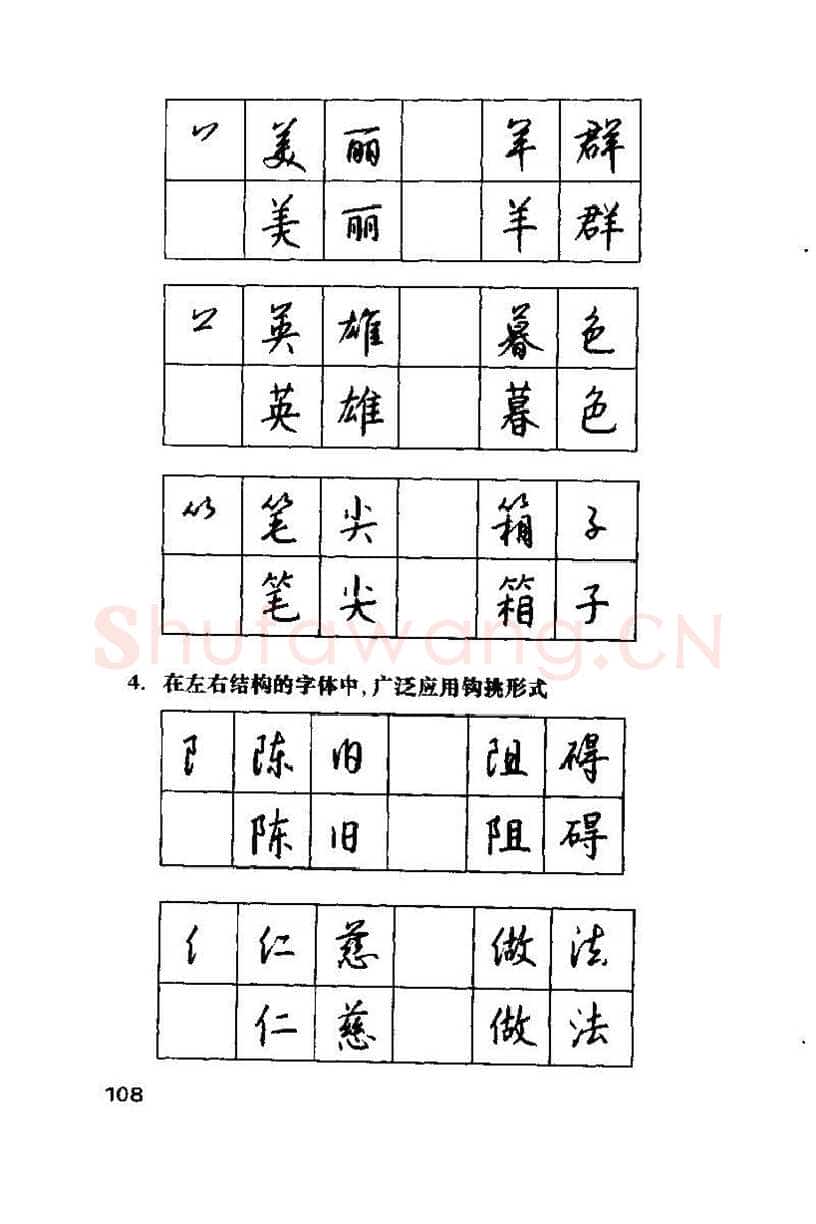 丷 美 丽 羊 群
美 丽 羊 群
英 雄 暮 色
英 雄 暮 色
笔 尖 箱 子
笔 尖 箱 子
Shufawang.CN
4. 在左右结构的字体中，广泛应用钩挑形式
阝 陈 旧 阻 碍
陈 旧 阻 碍
亻 仁 慈 做 法
仁 慈 做 法
108